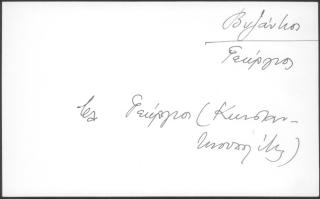 Βυζάντιος
Γεώργιος
Γεώργιος (Κωνσταν-
τινουπολίτης)